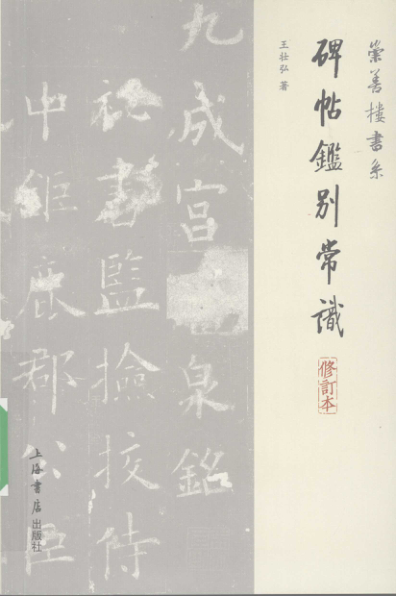 崇善楼書系
碑帖鑑别常識
修訂本
王壮弘 著
九成宫 泉銘
祕書監撿挍侍
中鉅鹿郡公臣
上海書店出版社